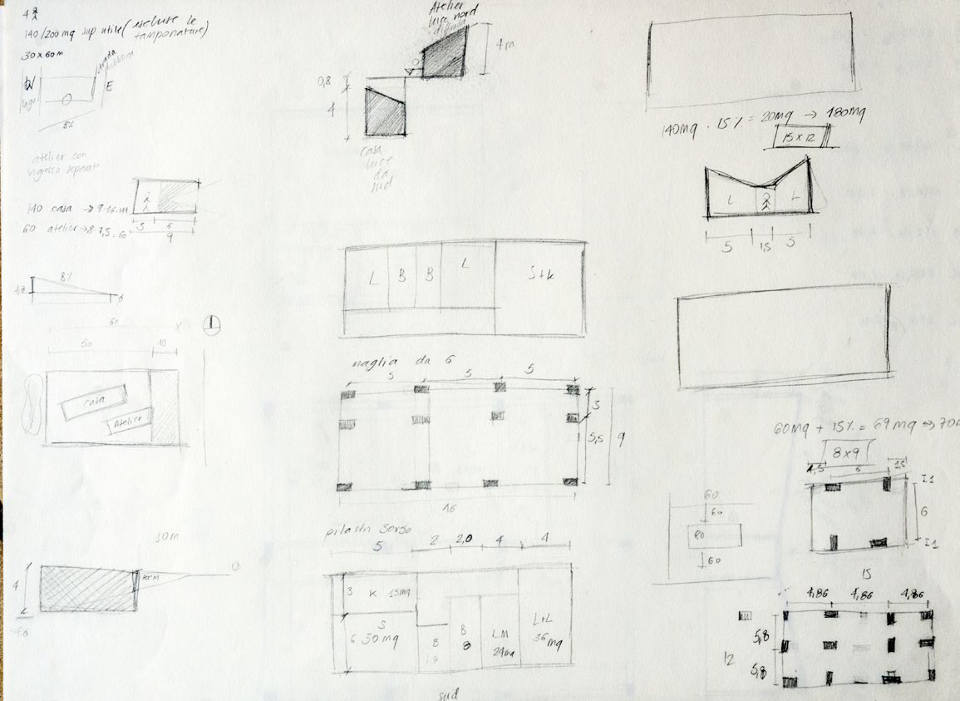 4
140/200mq sup utile (escluse le
tamponature)
30x60m
E
8%
atelier con
ingresso separato
140 casa →
60 atelier →
3
6
9
8%
60
50
10
casa
Atelier
10m
4
0
Atelier
luce nord
4m
0,8
4
casa
luce
da
sud
L
B
B
L
S+k
maglia da 6
5
5
5
3
5,5
9
16
pilastri
5
2
2,0
4
4
3
K
15mq
S
6
30mq
B
B
8
LM
24mq
L+L
36mq
sud
140mq . 15% = 20mq → 180mq
15x12
L
L
5
1,5
5
60mq + 15% = 69mq ⇒
8x9
1,5
6
1,5
6
60
60
60
15
4,86
4,86
4,86
5,8
12
5,8